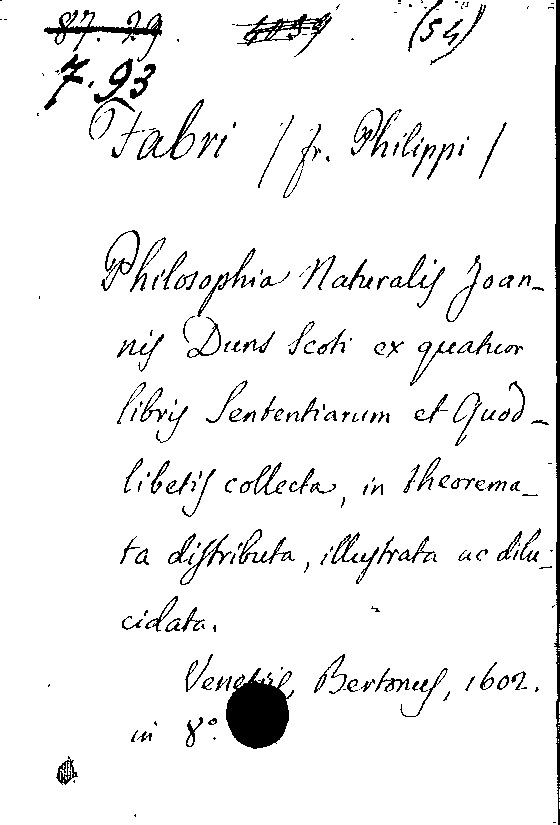 87. 29. 4039 (54)
7.93
Fabri / fr. Philippi /
Philosophia Naturalis Joan-
nis Duns Scoti ex quatuor
libris Sententiarum et Quod-
libetis collecta, in theorema-
ta distributa, illustrata ac dilu-
cidata.
Venetiis, Bertonus, 1602.
in 8°.